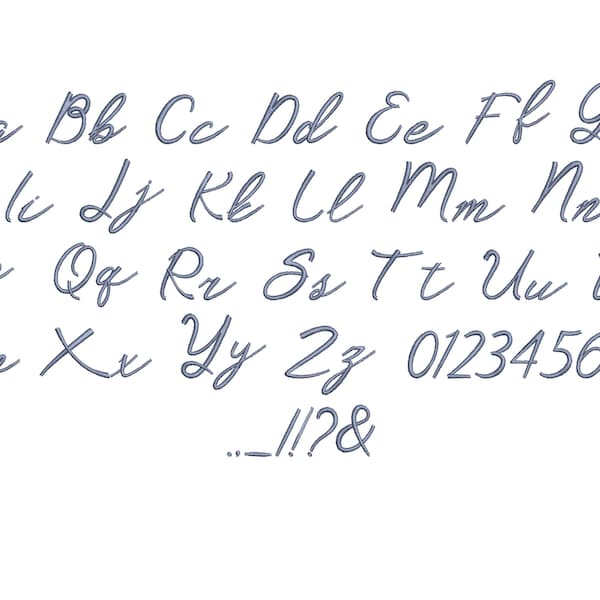 Bb Cc Dd Ee Ff
Ii Jj Kk Ll Mm Nn
Qq Rr Ss Tt Uu
Xx Yy Zz 0123456
.,_/!!?&